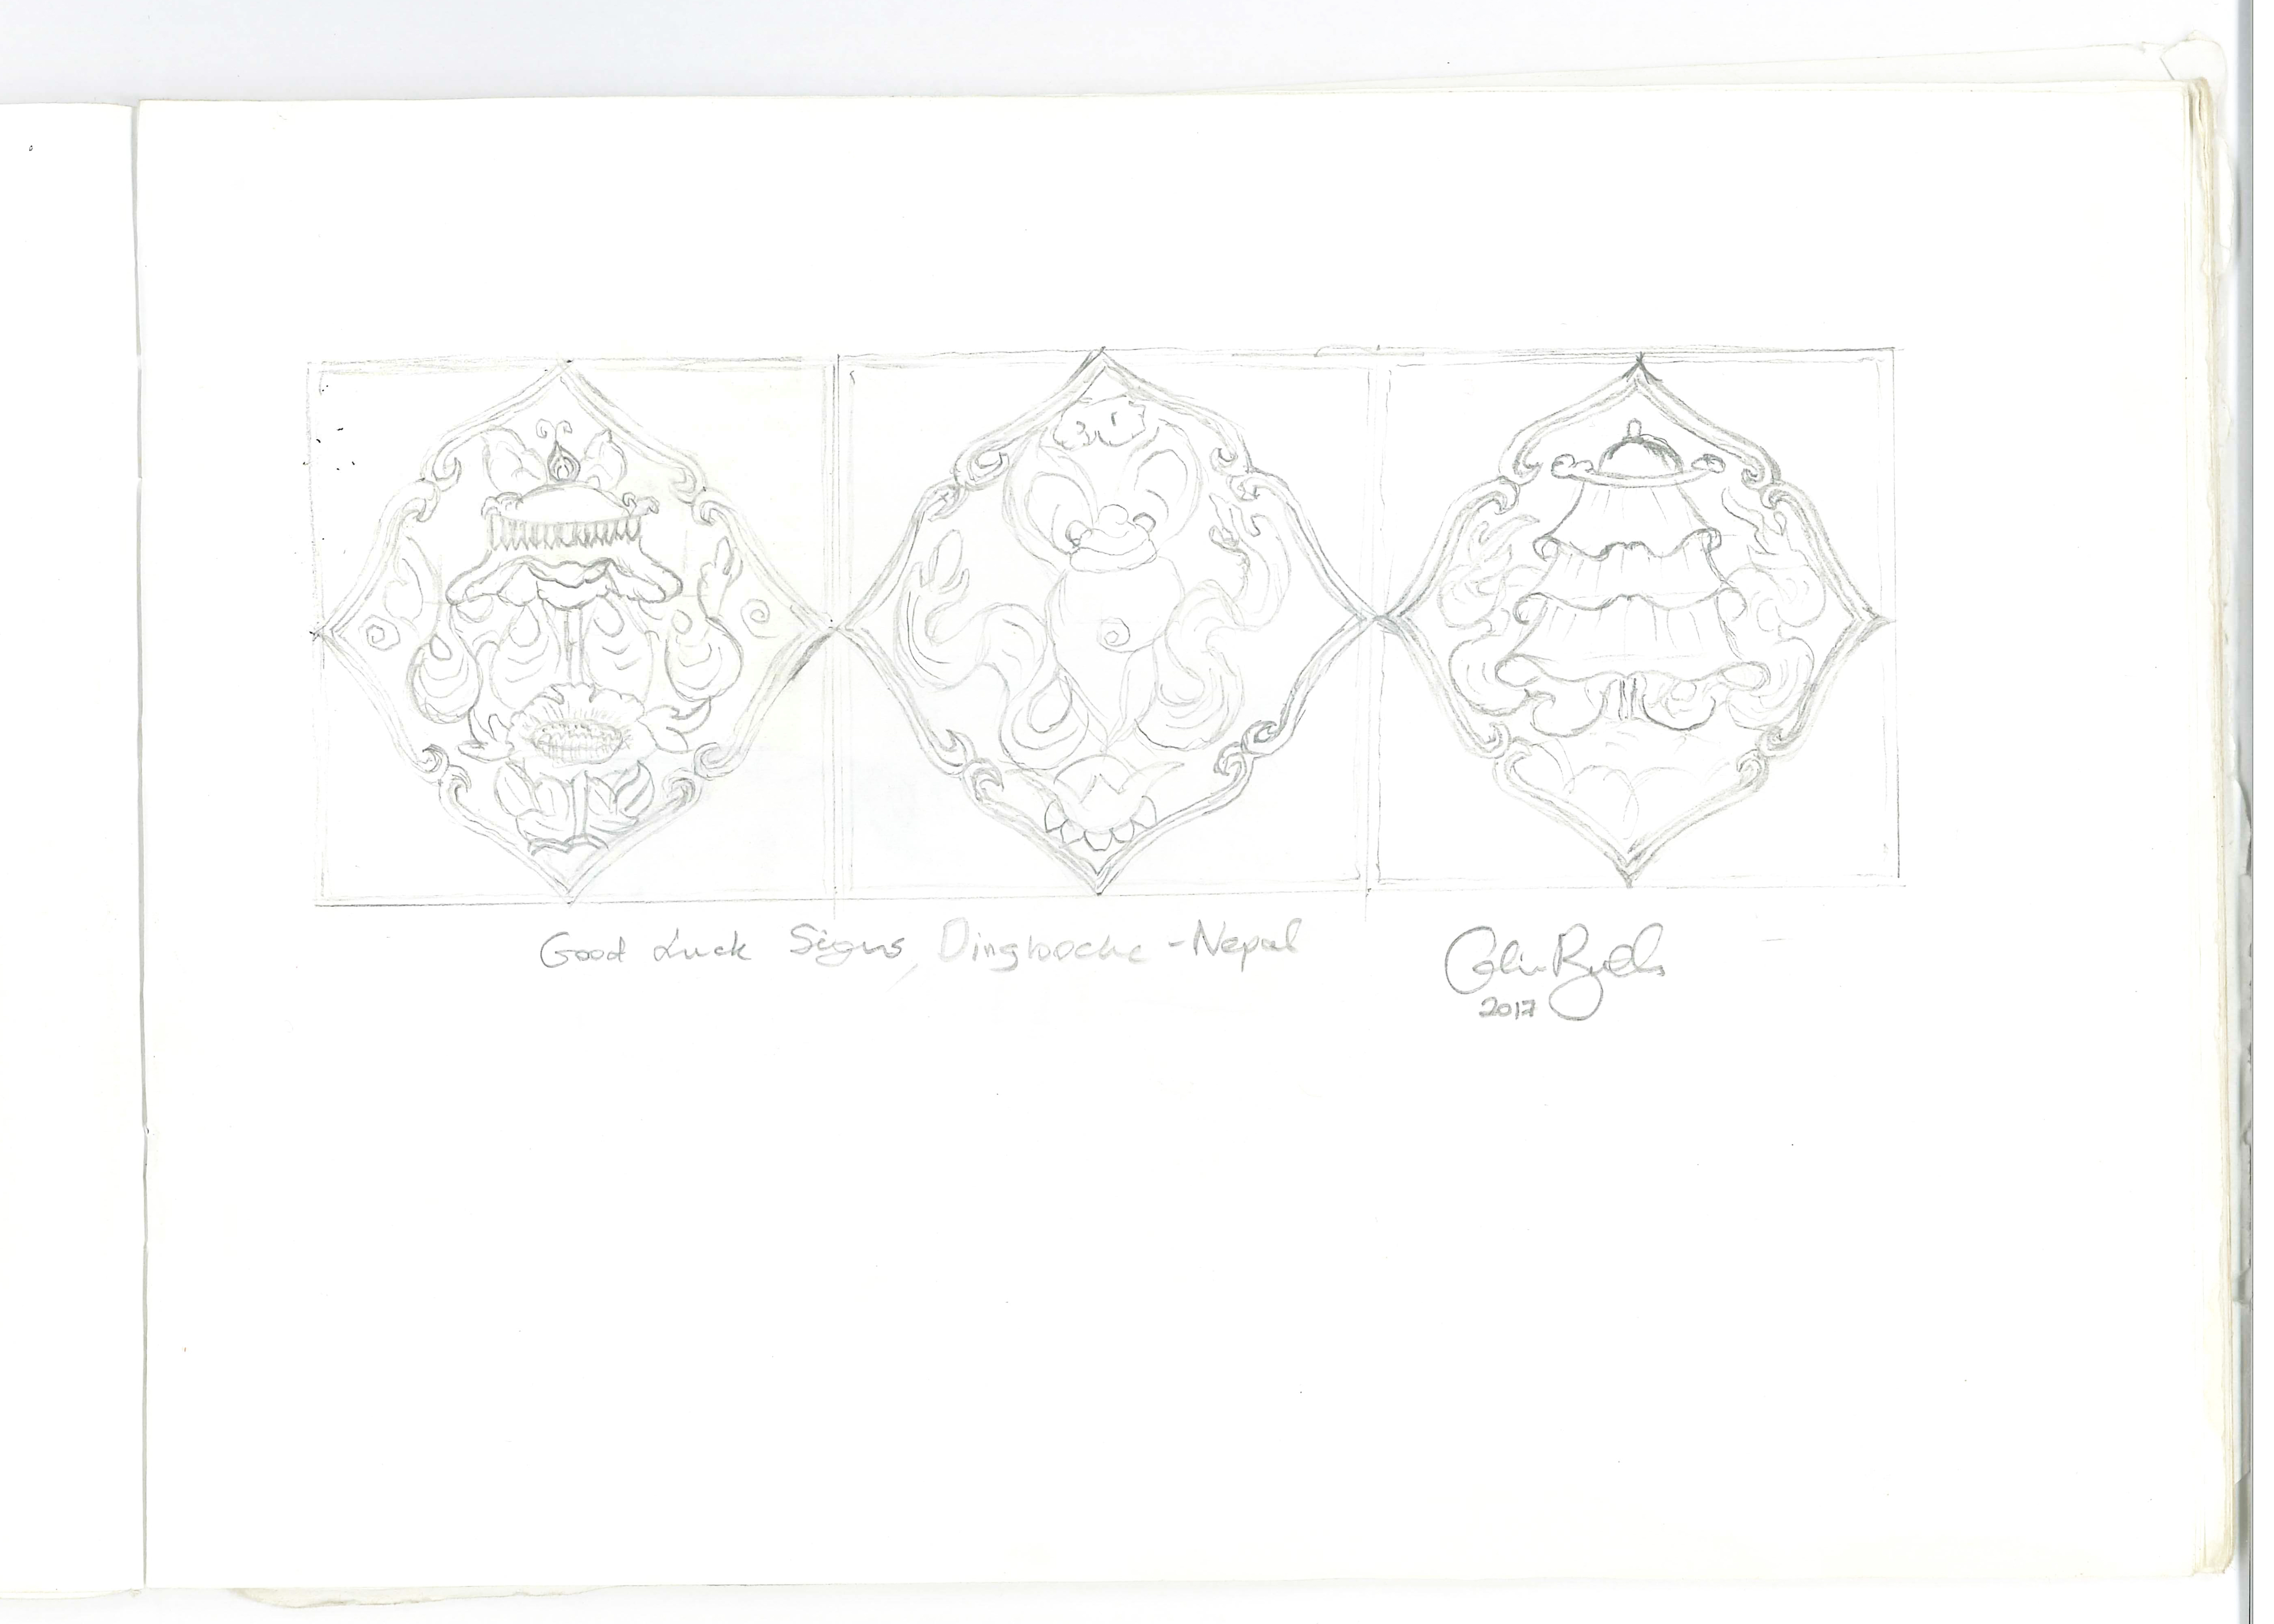 Good Luck Signs, Dingboche - Nepal
Colin
2017